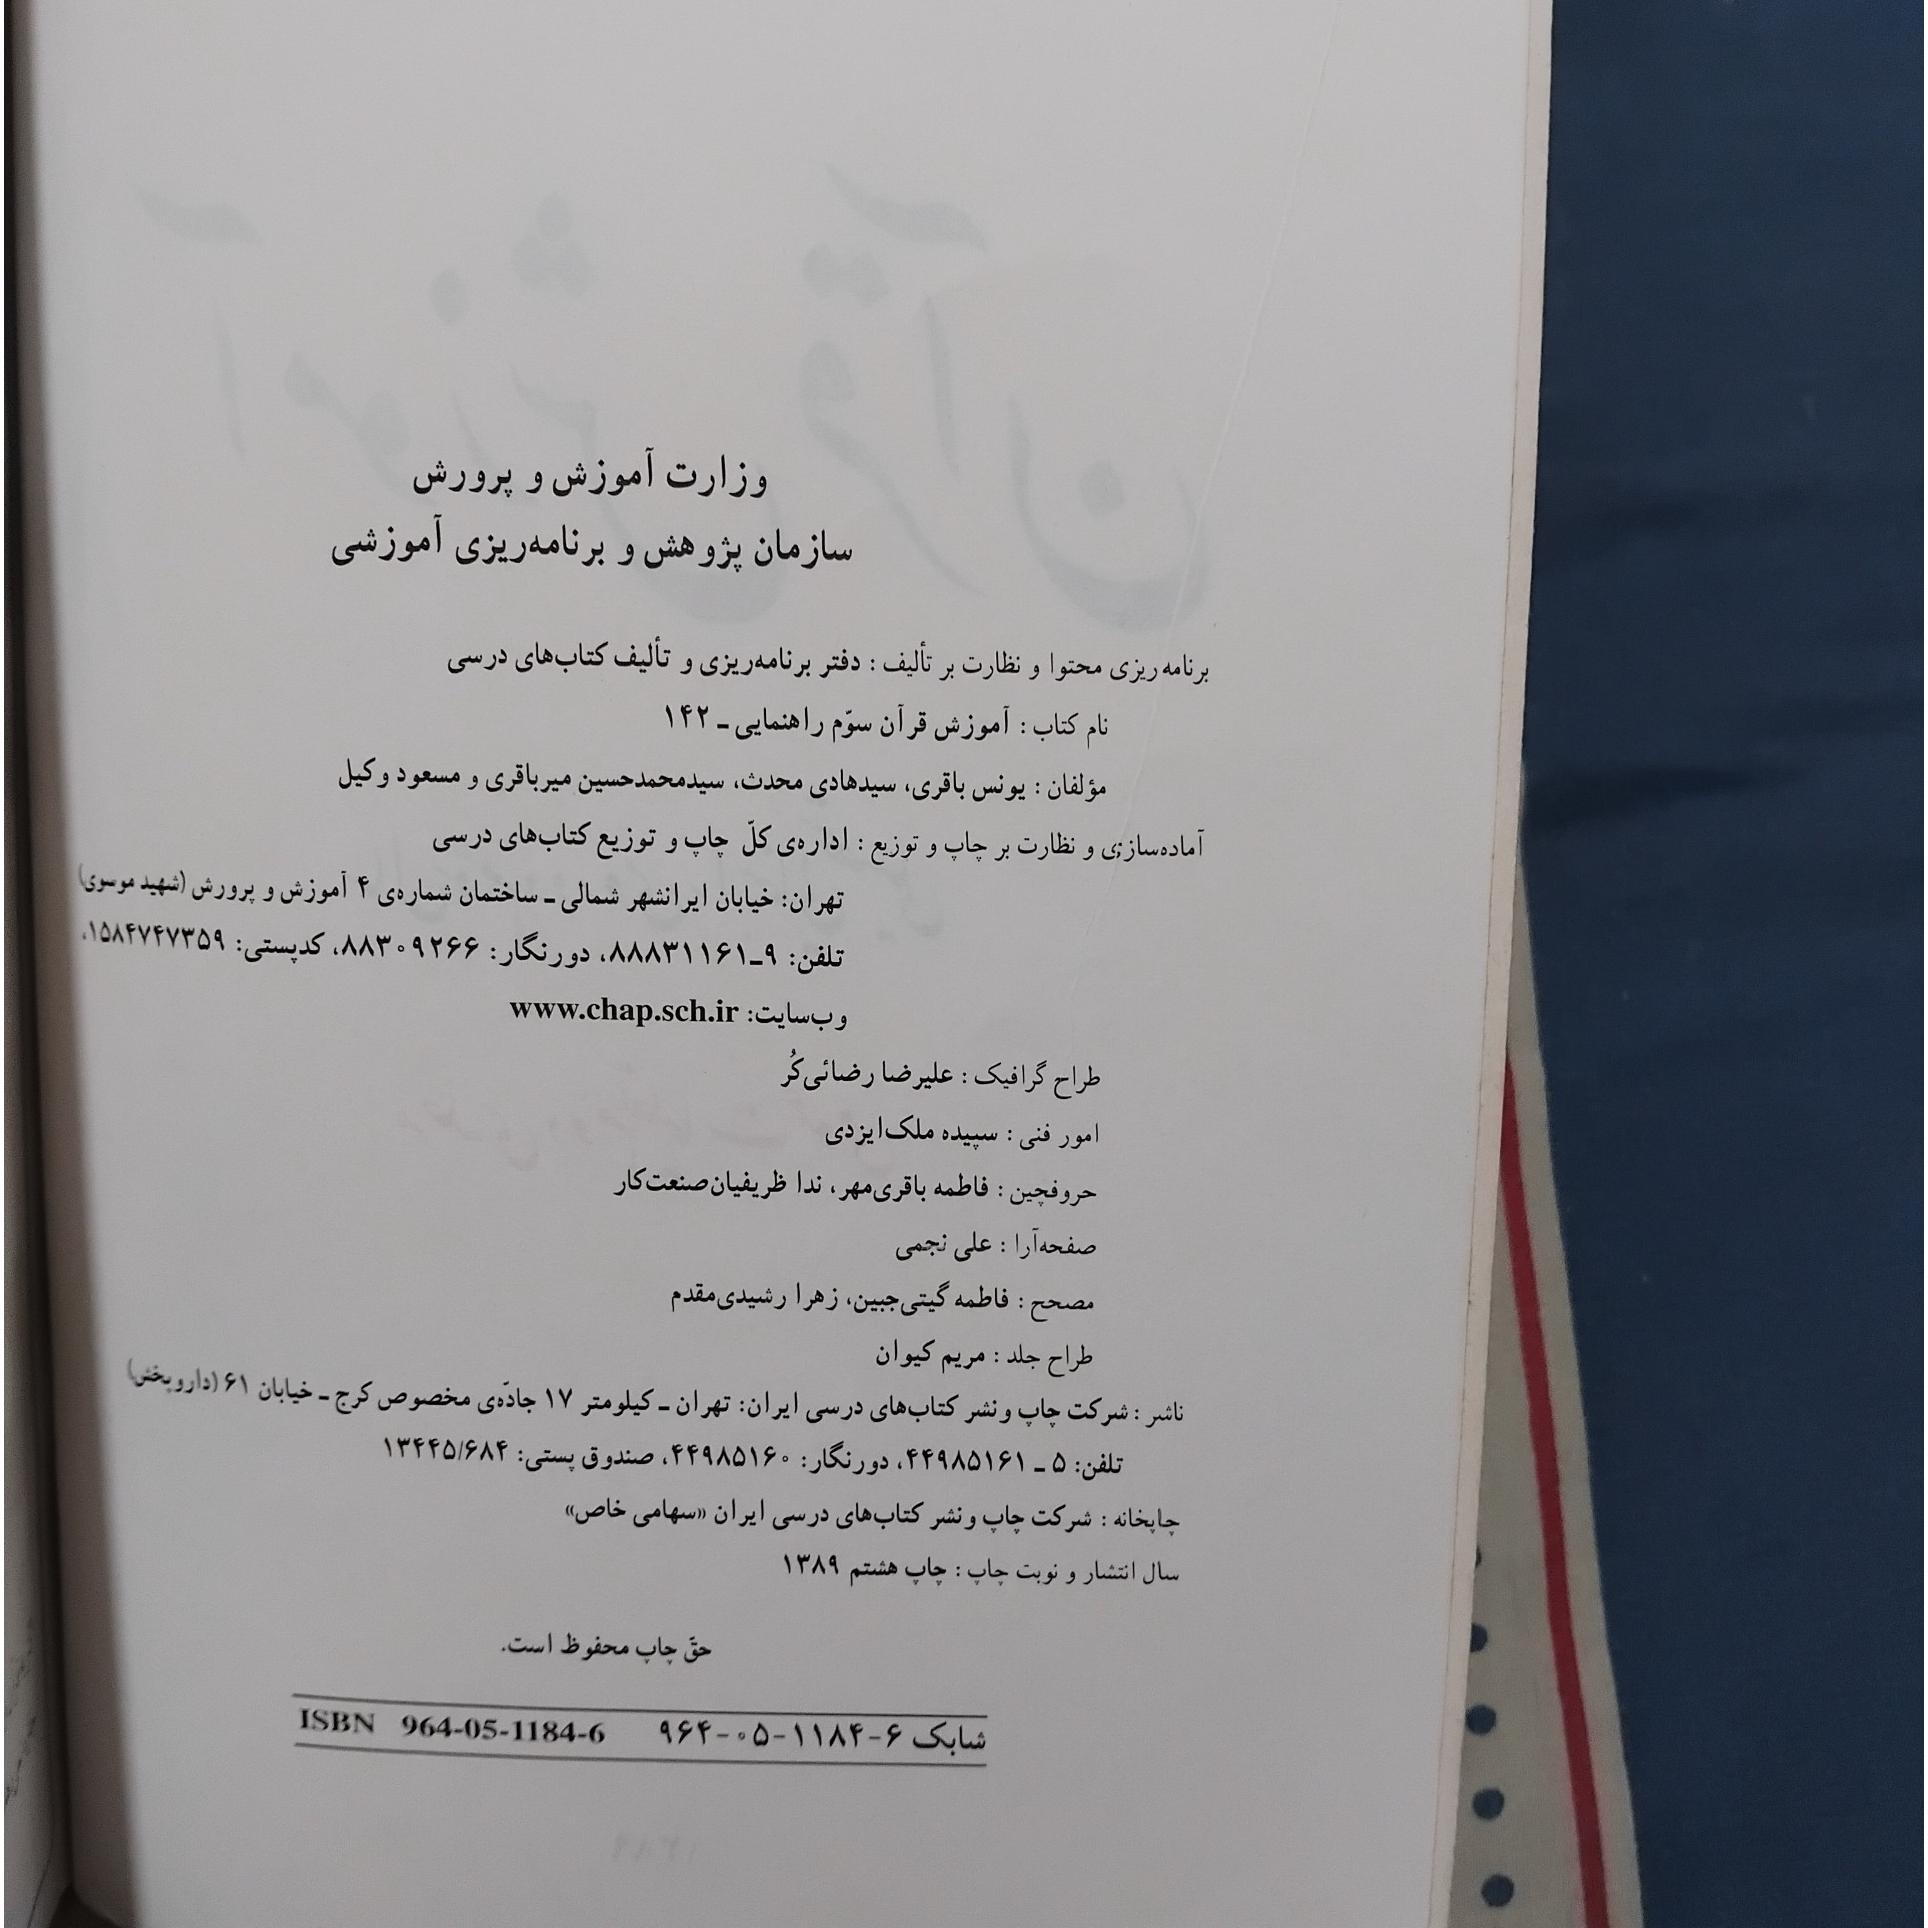 وزارت آموزش و پرورش
سازمان پژوهش و برنامه‌ریزی آموزشی
برنامه‌ریزی محتوا و نظارت بر تألیف : دفتر برنامه‌ریزی و تألیف کتاب‌های درسی
نام کتاب : آموزش قرآن سوّم راهنمایی ـ ۱۴۲
مؤلفان : یونس باقری، سیدهادی محدث، سیدمحمدحسین میرباقری و مسعود وکیل
آماده‌سازی و نظارت بر چاپ و توزیع : اداره‌ی کلّ چاپ و توزیع کتاب‌های درسی
تهران: خیابان ایرانشهر شمالی ـ ساختمان شماره‌ی ۴ آموزش و پرورش (شهید موسوی)
تلفن: ۹ـ۸۸۸۳۱۱۶۱، دورنگار: ۸۸۳۰۹۲۶۶، کدپستی: ۱۵۸۴۷۴۷۳۵۹،
وب‌سایت: www.chap.sch.ir
طراح گرافیک : علیرضا رضائی‌کُر
امور فنی : سپیده ملک‌ایزدی
حروفچین : فاطمه باقری‌مهر، ندا ظریفیان‌صنعت‌کار
صفحه‌آرا : علی نجمی
مصحح : فاطمه گیتی‌جبین، زهرا رشیدی‌مقدم
طراح جلد : مریم کیوان
ناشر : شرکت چاپ و نشر کتاب‌های درسی ایران: تهران ـ کیلومتر ۱۷ جادّه‌ی مخصوص کرج ـ خیابان ۶۱ (داروپخش)
تلفن: ۵ ـ ۴۴۹۸۵۱۶۱، دورنگار: ۴۴۹۸۵۱۶۰، صندوق پستی: ۱۳۴۴۵/۶۸۴
چاپخانه : شرکت چاپ و نشر کتاب‌های درسی ایران «سهامی خاص»
سال انتشار و نوبت چاپ : چاپ هشتم ۱۳۸۹
حقّ چاپ محفوظ است.
شابک ۶-۱۱۸۴-۰۵-۹۶۴ ISBN 964-05-1184-6